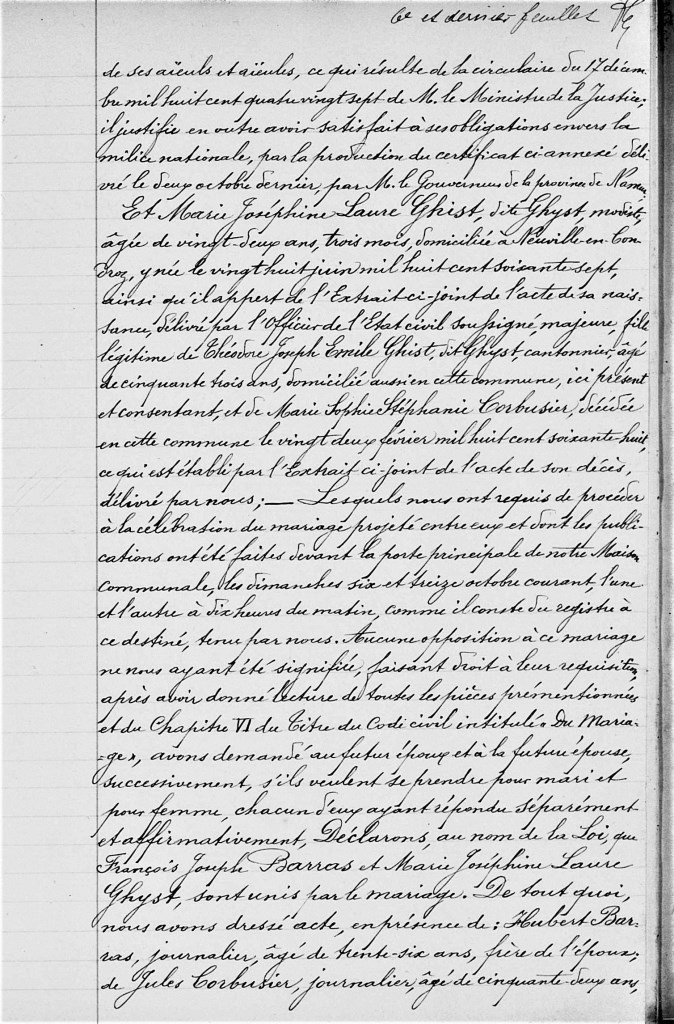 6e et dernier feuillet
de ses aïeuls et aïeules, ce qui résulte de la circulaire du 17 décem-
bre mil huit cent quatre vingt sept de M. le Ministre de la Justice;
il justifie en outre avoir satisfait à ses obligations envers la
milice nationale, par la production du certificat ci-annexé déli-
vré le deux octobre dernier, par M. le Gouverneur de la province de Namur.
Et Marie Joséphine Laure Ghist, dite Ghyst, modiste,
âgée de vingt-deux ans, trois mois, domiciliée à Neuville-en-Con-
droz, y née le vingt huit juin mil huit cent soixante-sept,
ainsi qu'il appert de l'Extrait ci-joint de l'acte de sa nais-
sance, délivré par l'Officier de l'Etat civil soussigné, majeure, fille
légitime de Théodore Joseph Emile Ghist, dit Ghyst, cantonnier, âgé
de cinquante trois ans, domicilié aussi en cette commune, ici présent
et consentant, et de Marie Sophie Stéphanie Corbusier, décédée
en cette commune le vingt deux février mil huit cent soixante-huit,
ce qui est établi par l'Extrait ci-joint de l'acte de son décès,
délivré par nous; — Lesquels nous ont requis de procéder
à la célébration du mariage projeté entre eux et dont les publi-
cations ont été faites devant la porte principale de notre Maison
Communale, les dimanches six et treize octobre courant, l'une
et l'autre à dix heures du matin, comme il conste du registre à
ce destiné, tenu par nous. Aucune opposition à ce mariage
ne nous ayant été signifiée, faisant droit à leur requisition,
après avoir donné lecture de toutes les pièces prémentionnées
et du Chapitre VI du Titre du Code civil intitulé « Du Maria-
-ge », avons demandé au futur époux et à la future épouse,
successivement, s'ils veulent se prendre pour mari et
pour femme, chacun d'eux ayant répondu séparément
et affirmativement, Déclarons, au nom de la Loi, que
François Joseph Barras et Marie Joséphine Laure
Ghyst, sont unis par le mariage. De tout quoi,
nous avons dressé acte, en présence de: Hubert Bar-
ras, journalier, âgé de trente-six ans, frère de l'époux;
de Jules Corbusier, journalier, âgé de cinquante-deux ans,